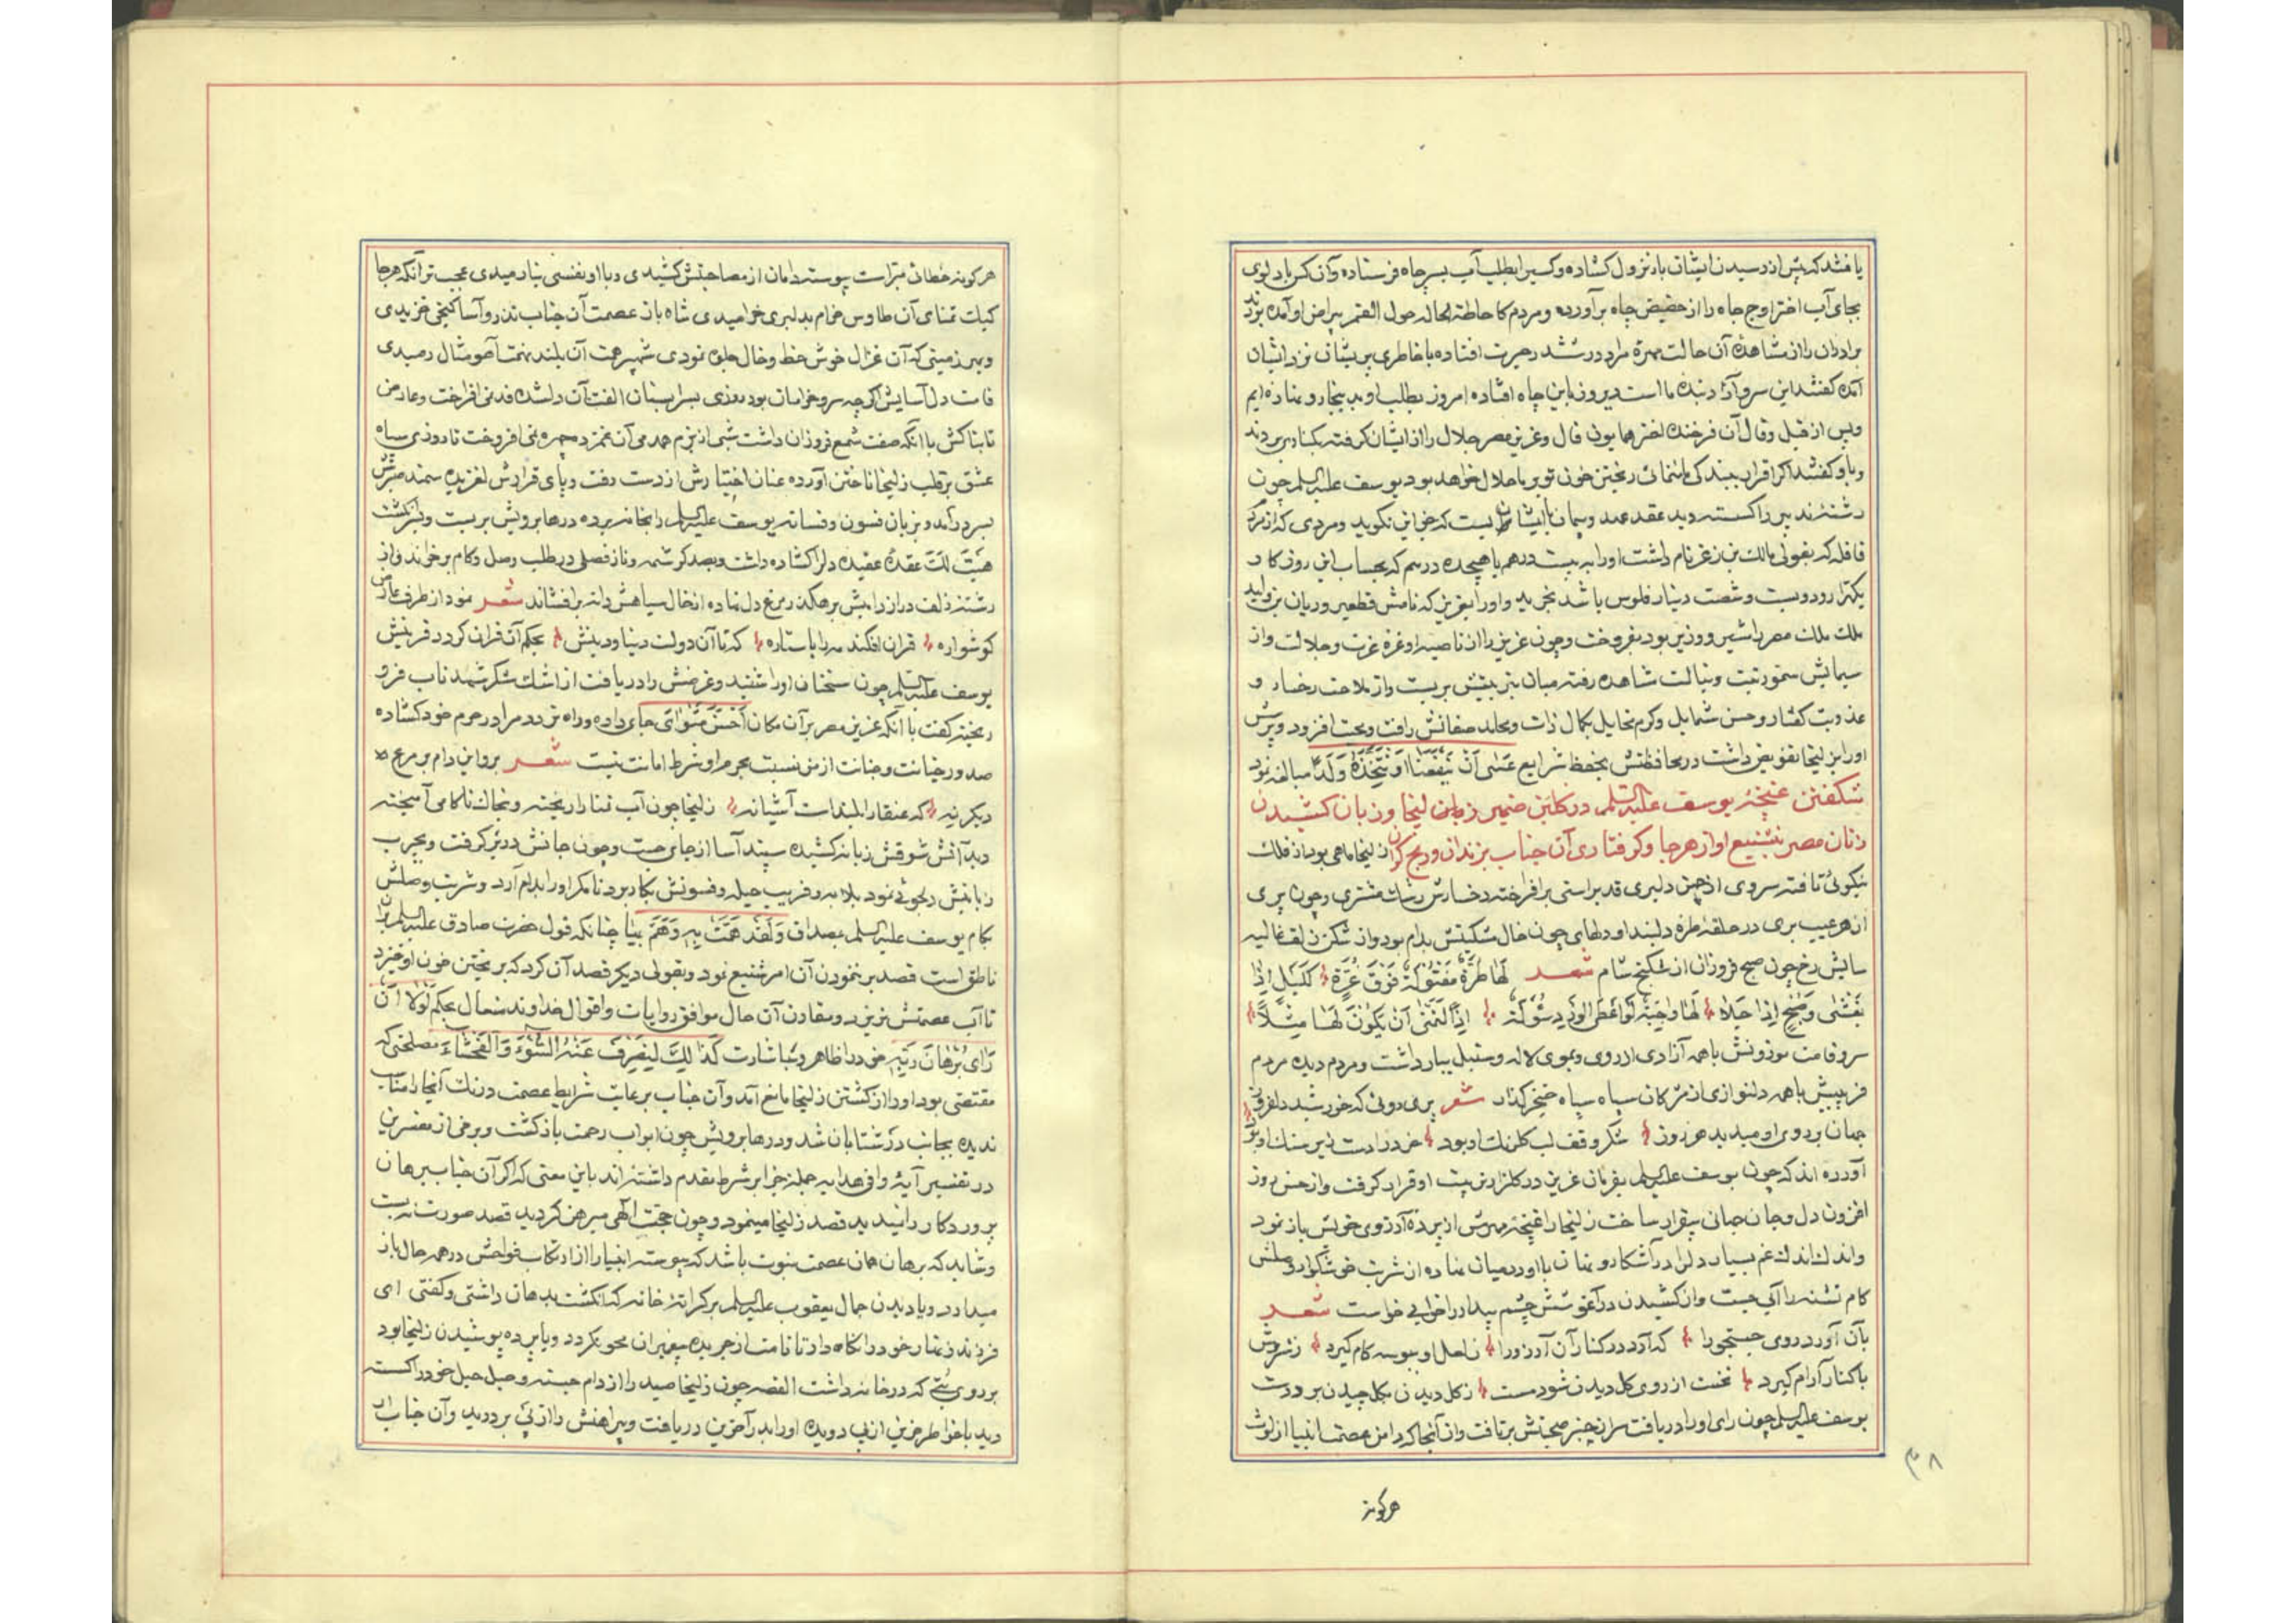 یافتند که پس از رسیدن ایشان بار نزول کشاده و کسیرا بطلب آب بسر چاه فرستاده و آن کس با دلوی
بجای آب اختر اوج جاه را از حضیض چاه برآورده و مردم کاحاطة الهاله حول القمر پیرامن او آمده بودند
برادران را از مشاهده آن حالت مهره مراد در ششدر حیرت افتاده با خاطری پریشان نزد ایشان
آمده کفتند این سرو آزاد بنده ما است دیروز باین چاه افتاده امروز بطلب او بدینجا رو نهاده ایم
و پس از قیل و قال آن فرخنده اختر همایون فال و عزیز مصر جلال را از ایشان کرفته بکناری بردند
و باو کفتند اکر اقرار ببندکی ما ننمائی ریختن خون تو بر ما حلال خواهد بود یوسف علیه السلم چون
رشته تدبیر را کسسته دید عقد عهد و پیمان با ایشان بست که جز این نکوید و مردی که از مردم
قافله که بقولی مالک بن زعر نام داشت او را به بیست درهم یا هیجده درهم که بحساب این روزکار
یکهزار و دویست و شصت دینار فلوس باشد بخرید و او را بعزیز که نامش قطمیر و ریان بن ولید
ملک ملک مصر را مشیر و وزیر بود بفروخت و چون عزیز را از ناصیه او غره عزت و جلالت و از
سیمایش سمو رتبت و نبالت مشاهده رفته میان بتربیتش بربست و از ملاحت رخسار و
عذوبت کفتار و حسن شمایل و کرم مخایل بکمال ذات و محامد صفاتش رافت و محبت افزود و پرورش
او را بزلیخا تفویض داشت در محافظتش بحفظ شرایع عَسٰی اَنْ یَنْفَعَنا اَوْ نَتَّخِذَهُ وَلَداً مبالغه نمود
شکفتن غنچهٔ یوسف علیه السلم در کلبن ضمیر زلیخا و زبان کشیدن
زنان مصر بتشنیع او از هرجا و کرفتاری آن جناب بزندان و رنج کران زلیخا ماهی بود از فلک
نیکوئی تافته سروی از چمن دلبری قد براستی برافراخته رخسارش رشک مشتری و چون پری
از هر عیب بری در حلقهٔ طره دلبند او دلهای چون خال مسکینش بدام بود و از شکن زلف غالیه
سایش رخ چون صبح فروزان از شکنج شام شعر لَها طُرَّةٌ مَفْتُولَةٌ فَوْقَ غُرَّةٍ کَلَیْلٍ اِذا
یَغْشٰی وَ صُبْحٍ اِذا جَلا
سرو قامت موزونش با همه آزادی از روی و موی لاله و سنبل ببار داشت و مردم دیده مردم
فریبش با همه دلنوازی از مژکان سیاه سپاه خنجرکذار شعر پری روئی که خورشید دلفروز
جهان بر روی او میدید هر روز شکر وقف لب کلرنک او بود
آورده اند که چون یوسف علیه السلم بفرمان عزیز در کلزار تربیت او قرار کرفت و از حسن روز
افزون دل و جان جهانی بیقرار ساخت زلیخا را غنچه مهرش از پرده آرزوی خویش باز نمود
و اندک اندک غم بسیار دل را در آشکار و نهان با او در میان نهاده از شربت خوشکوار وصلش
کام تشنه را آبی جست و از کشیدن در آغوشش چشم بیدار را خوابی خواست شعر
بآن آورد روی جستجو را که آرد در کنار آن آرزو را ز لعل او ببوسه کام کیرد ز سروش
با کنار آرام کیرد نخست از روی کل دیدن شود مست ز کل دیدن بکل چیدن برد دست
یوسف علیه السلم چون رای او را دریافت سر از چنبر صحبتش برتافت و از آنجا که دامن عصمت انبیا از لوث
هرکونه
۳۸
هرکونه خطائی مبراست پیوسته دامان از مصاحبتش کشیدی و با او نفسی نیارمیدی عجب تر آنکه هرجا
کبک تمنای آن طاوس خرام بدلبری خرامیدی شاه باز عصمت آن جناب تذرو آسا بکنجی خزیدی
و بهر زمینی که آن غزال خوش خط و خال جلوه نمودی شهپر همت آن بلند همت آهو مثال رمیدی
قامت دل آسایش اکرچه سرو خرامان بود روزی بسرابستان الفت آن دلشده قد نمی افراخت و عارض
تابناکش با آنکه صفت شمع فروزان داشت شبی از بزم همدمی آن غمزده چهره نمی افروخت تا روزی سپاه
عشق بر قلب زلیخا تاختن آورده عنان اختیارش از دست رفت و پای قرارش لغزیده سمند صبرش
بسر درآمد و بزبان فسون و فسانه یوسف علیه السلم را بخانه برده درها برویش بربست و بسرانکشت
هَیْتَ لَکَ عقده عقیده دل را کشاده داشت و بصد کرشمه و ناز فصلی در طلب وصل و کام برخواند و از
رشته زلف دراز دامیش بر هکذر مرغ دل نهاده از خال سیاهش دانه برافشاند شعر نمود از طرف عارض
کوشواره قران افکند مه را با ستاره که تا آن دولت دنیا و دینش بحکم آن قران کردد قرینش
یوسف علیه السلم چون سخنان او را شنید و غرضش را دریافت از اشک شکر شهد ناب فرو
ریخته کفت با آنکه عزیز مصر بر آن مکان اَحْسَنَ مَثْوایَ جای داده و راه تردد مرا در حرم خود کشاده
صدور خیانت و جنایت از من نسبت بحرم او شرط امانت نیست شعر برو این دام بر مرغ
دیکر نه که عنقا را بلندات آشیانه زلیخا چون آب تمنا را ریخته و بخاک ناکامی آمیخته
دید آتش شوقش زبانه کشیده سپند آسا از جای جست و چون جانش در بر کرفت و بچرب
زبانیش دلجوئی نمود بلابه و فریب حیله و فسونش بکار برد تا مکر او را بدام آرد و شربت وصلش
بکام یوسف علیه السلم بمصداق وَلَقَدْ هَمَّتْ بِهِ وَهَمَّ بِها چنانکه قول حضرت صادق علیه السلم بدان
ناطق است قصد بر ننمودن آن امر شنیع نمود و بقولی دیکر قصد آن کرد که بریختن خون او خیزد
تا آب عصمتش نریزد و مقارن آن حال موافق روایات و اقوال خداوند متعال بحکم لَوْلا اَنْ
رَایٰ بُرْهانَ رَبِّهِ خود را ظاهر و بباشارت کَذٰلِکَ لِنَصْرِفَ عَنْهُ السُّوءَ وَالْفَحْشاءَ مصلحتی که
مقتضی بود او را از کشتن زلیخا مانع آمد و آن جناب برعایت شرایط عصمت درنک آنجا را مناسب
ندیده بجانب در شتابان شد و درها برویش چون ابواب رحمت باز کشت و برخی از مفسرین
در تفسیر آیهٔ وافی هدایه جمله جزا بر شرط مقدم داشته اند باین معنی که اکر آن جناب برهان
پروردکار را نمیدید قصد زلیخا مینمود و چون حجت الهی مبرهن کردید قصد صورت نه بست
و شاید که برهان همان عصمت نبوت باشد که پیوسته انبیا را از ارتکاب فواحش در همه حال باز
میدارد و یا دیدن جمال یعقوب علیه السلم بر کرانهٔ خانه که انکشت بدهان داشتی و کفتی ای
فرزند زنهار خود را نکاه دار تا نامت از جریده پیغمبران محو نکردد و یا پرده پوشیدن زلیخا بود
بر روی بُتی که در خانه داشت القصه چون زلیخا صید را از دام جسته و حبل حیل خود را کسسته
دید با خواطر حزین از پی دویده او را بدر آخرین دریافت و پیراهنش را از پی بردرید و آن جناب از